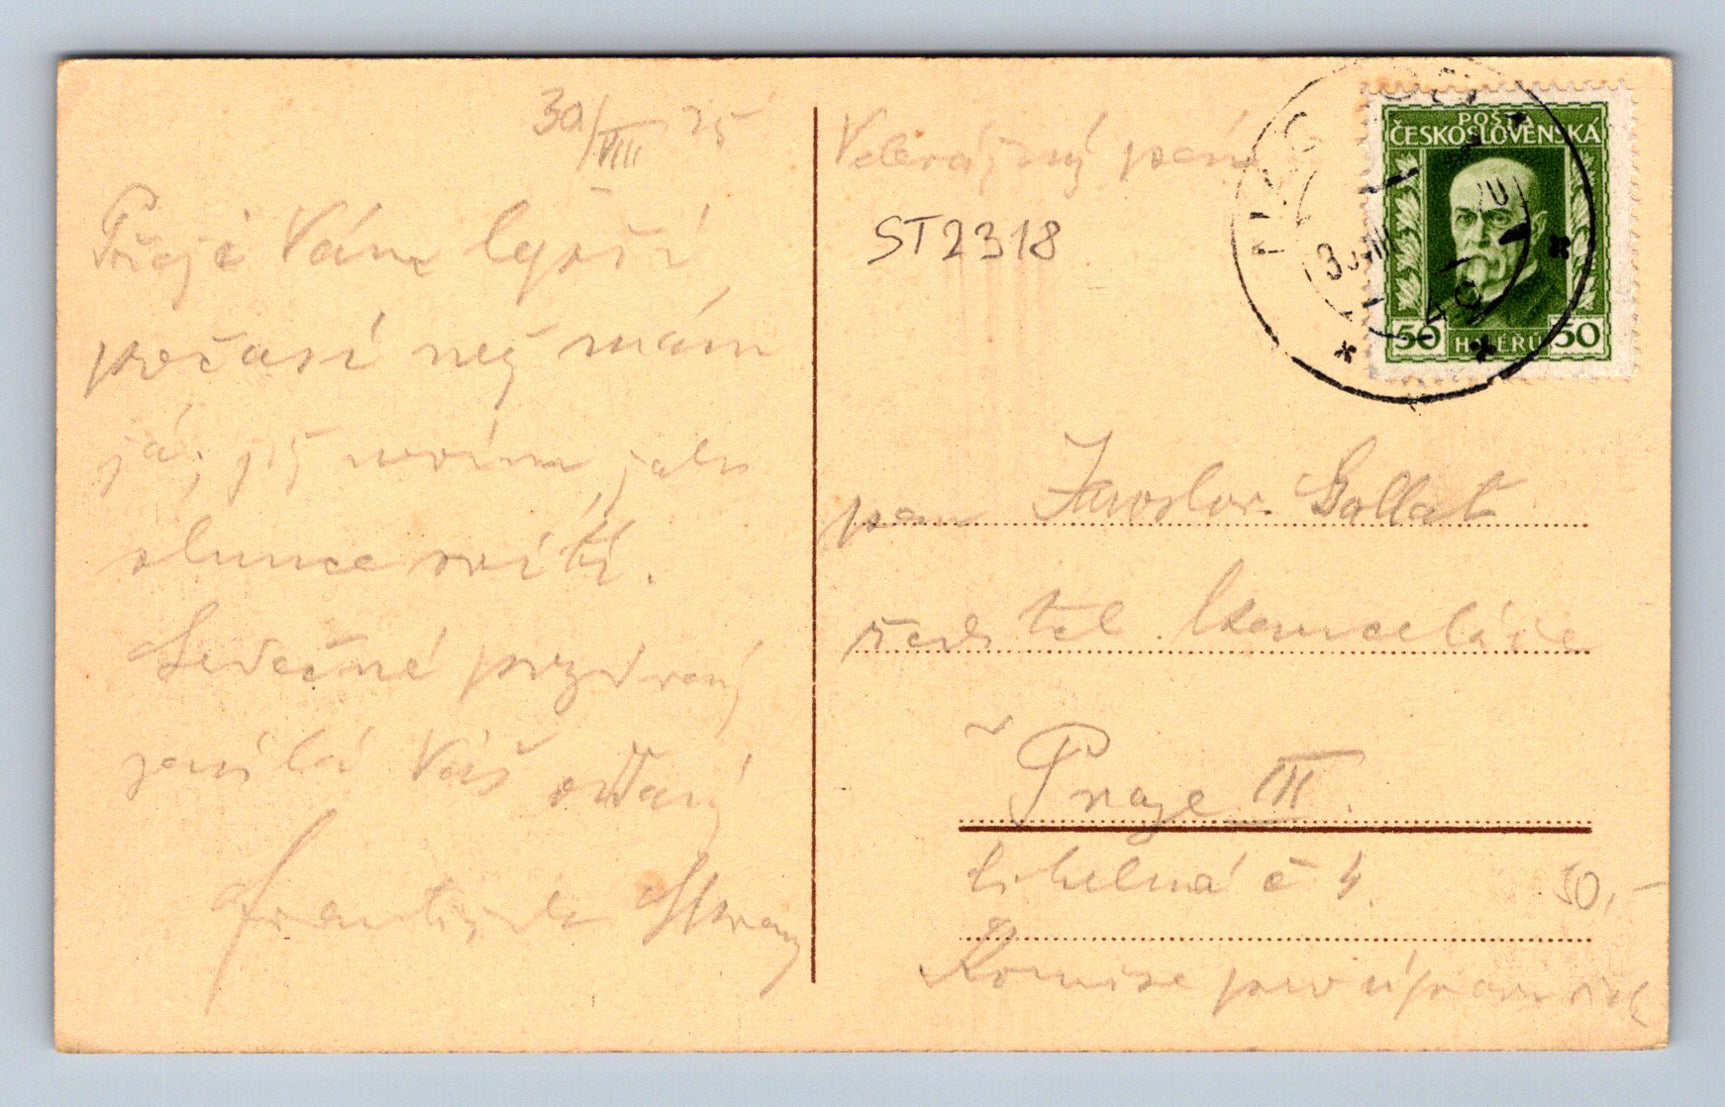 30/VIII 25
Přeji Vám lepší
počasí než mám
já, již nevím jak
slunce svítí.
Srdečné pozdravy
zasílá Váš oddaný
František
pan
ST2318
POŠTA
ČESKOSLOVENSKÁ
50 HALÉŘŮ 50
pan Jaroslav Gollat
ředitel kanceláře
v Praze III.
Cihelná č 4.
50,-
Komise pro úpravu